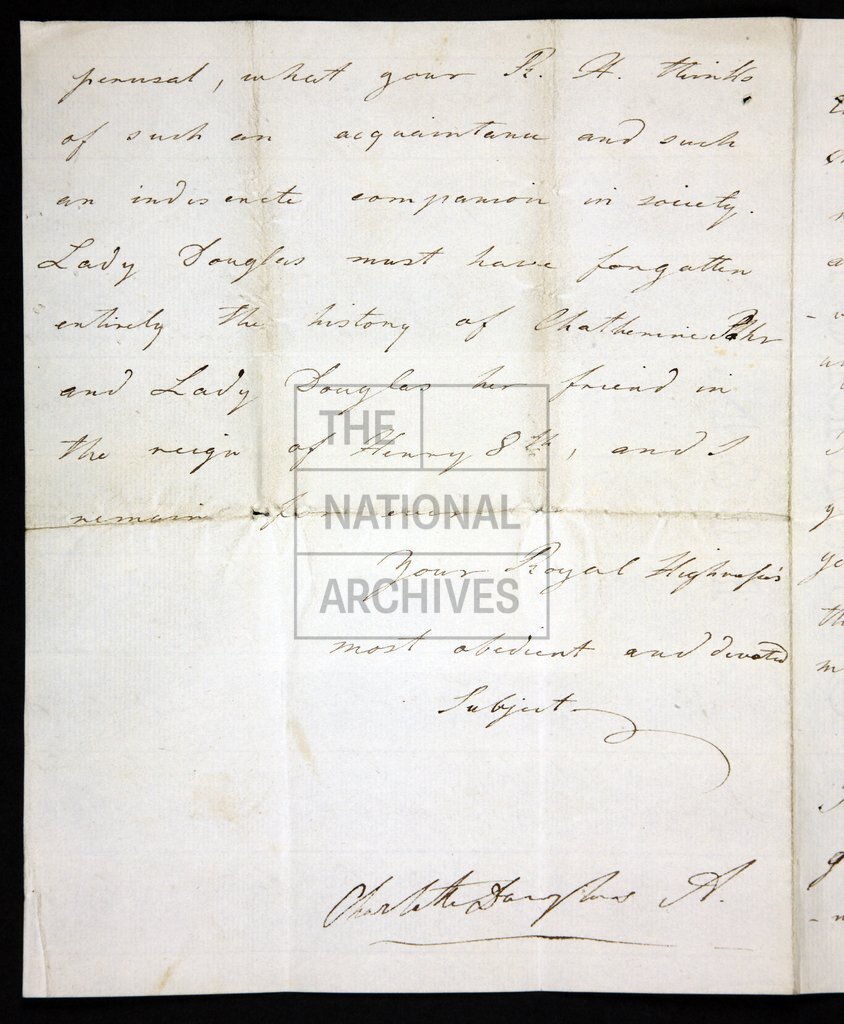 perusal, what your R. H. thinks
of such an acquaintance and such
an indiscrete companion in society.
Lady Douglas must have forgotten
entirely the history of Chatherine Pahr
and Lady Douglas her friend in
the reign of Henry 8th, and I
remain for ever
Your Royal Highness's
most obedient and devoted
Subject
Charlotte Douglas A.
THE
NATIONAL
ARCHIVES